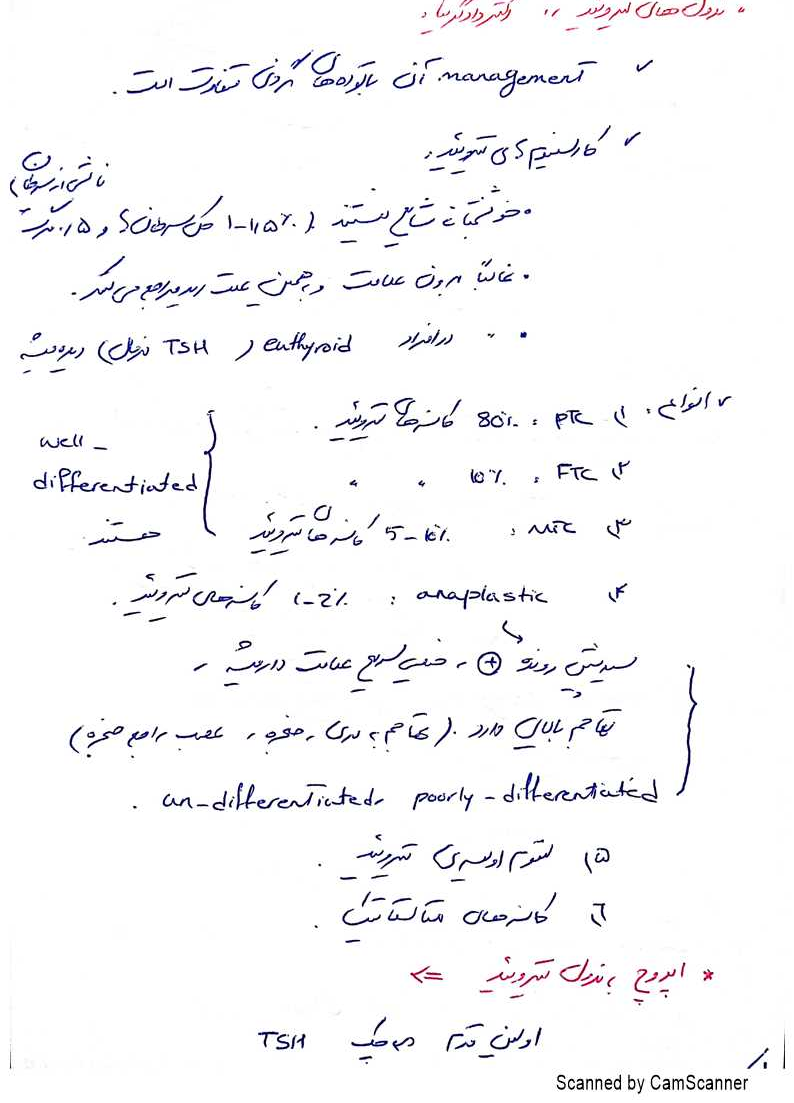 * ندول های تیروئید ،، دکتر دادگرنیا:
✓ management آن با توده های گردنی متفاوت است .
✓ کارسینوم های تیروئید:
• خوشبختانه شایع نیستند (1-1,5% کل سرطان ها و 0,5 مرگ ناشی از سرطان)
• غالباً بدون علامت و به همین علت دیر مراجع می کند.
• ,, در افراد euthyroid ( TSH نرمال) دیده میشه
✓ انواع: ۱) PTC : 80% کانسرهای تیروئید .
۲) FTC : 10% ,, ,,
۳) MTC : 5-10% کانسرهای تیروئید
well-
differentiated
هستند
۴) anaplastic : 1-2% کانسرهای تیروئید .
پیش رونده ⊕ ، خیلی سریع علامت دار میشه ،
تهاجم بالایی دارد . (تهاجم به مری ، حنجره ، عصب راجعه حنجره)
un-differentiated، poorly-differentiated .
۵) لنفوم اولیه ی تیروئید .
۶) کانسرهای متاستاتیک .
* اپروچ به ندول تیروئید <=
اولین قدم چک TSH
۱/
Scanned by CamScanner